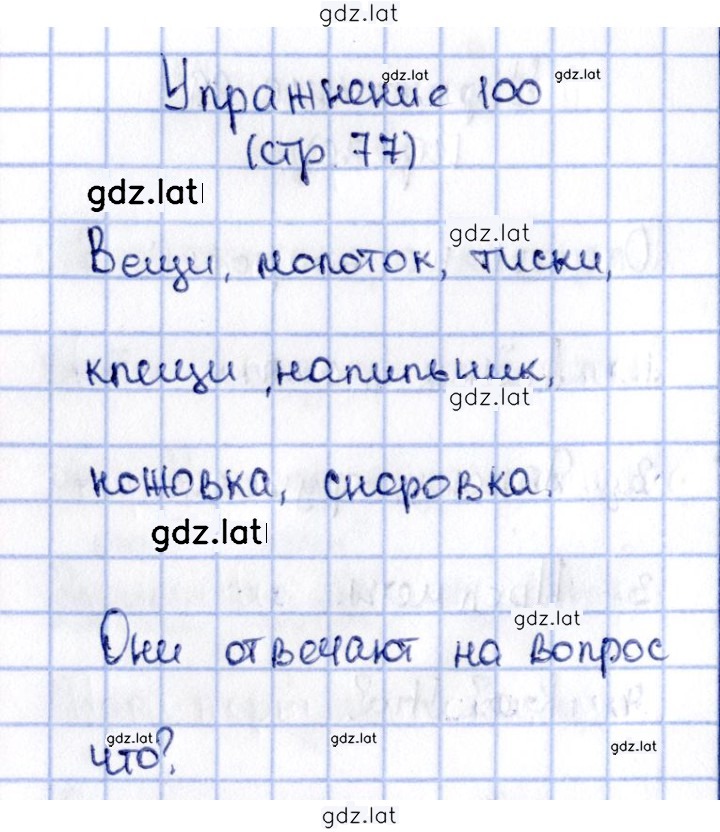 gdz.lat
gdz.lat gdz.lat
Упражнение 100
(стр. 77)
gdz.lat
gdz.lat
Вещи, молоток, тиски,
клещи, напильник,
gdz.lat
ножовка, сноровка.
gdz.lat
gdz.lat
Они отвечают на вопрос
gdz.lat gdz.lat gdz.lat
что?
gdz.lat